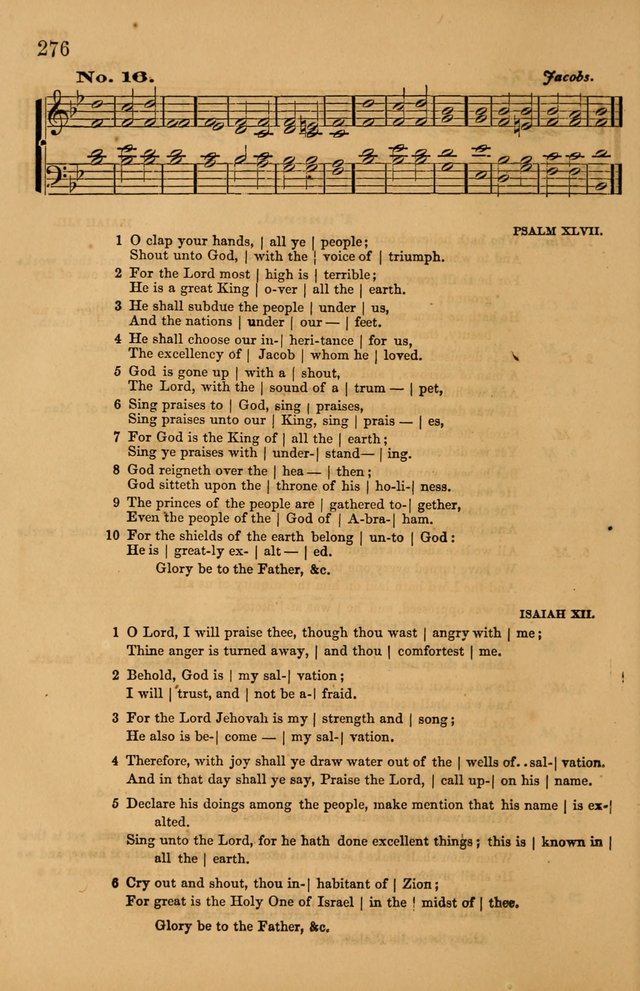 276
No. 16.
Jacobs.
PSALM XLVII.
1 O clap your hands, | all ye | people;
Shout unto God, | with the | voice of | triumph.
2 For the Lord most | high is | terrible;
He is a great King | o-ver | all the | earth.
3 He shall subdue the people | under | us,
And the nations | under | our — | feet.
4 He shall choose our in-| heri-tance | for us,
The excellency of | Jacob | whom he | loved.
5 God is gone up | with a | shout,
The Lord, with the | sound of a | trum — | pet,
6 Sing praises to | God, sing | praises,
Sing praises unto our | King, sing | prais — | es,
7 For God is the King of | all the | earth;
Sing ye praises with | under-| stand— | ing.
8 God reigneth over the | hea — | then;
God sitteth upon the | throne of his | ho-li-| ness.
9 The princes of the people are | gathered to-| gether,
Even the people of the | God of | A-bra-| ham.
10 For the shields of the earth belong | un-to | God:
He is | great-ly ex- | alt — | ed.
Glory be to the Father, &c.
ISAIAH XII.
1 O Lord, I will praise thee, though thou wast | angry with | me;
Thine anger is turned away, | and thou | comfortest | me.
2 Behold, God is | my sal-| vation;
I will | trust, and | not be a-| fraid.
3 For the Lord Jehovah is my | strength and | song;
He also is be-| come — | my sal-| vation.
4 Therefore, with joy shall ye draw water out of the | wells of..sal-| vation.
And in that day shall ye say, Praise the Lord, | call up-| on his | name.
5 Declare his doings among the people, make mention that his name | is ex-|
alted.
Sing unto the Lord, for he hath done excellent things; this is | known in |
all the | earth.
6 Cry out and shout, thou in-| habitant of | Zion;
For great is the Holy One of Israel | in the | midst of | thee.
Glory be to the Father, &c.